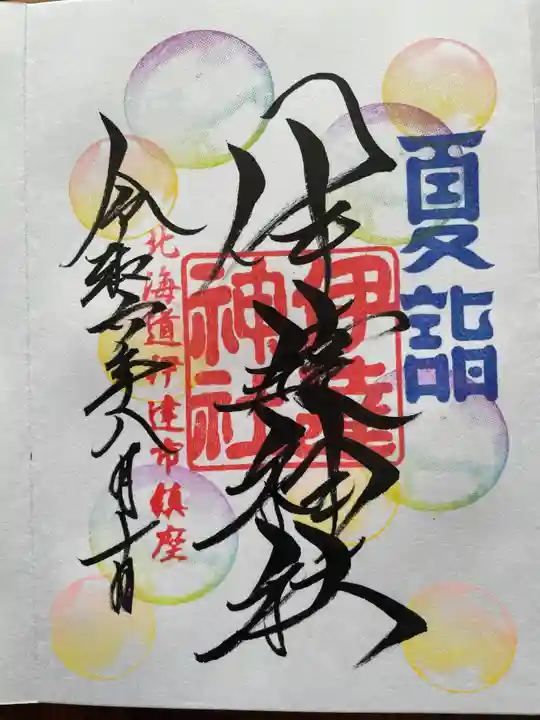 夏詣
伊達神社
伊達
神社
北海道伊達市鎮座
令和六年八月十日